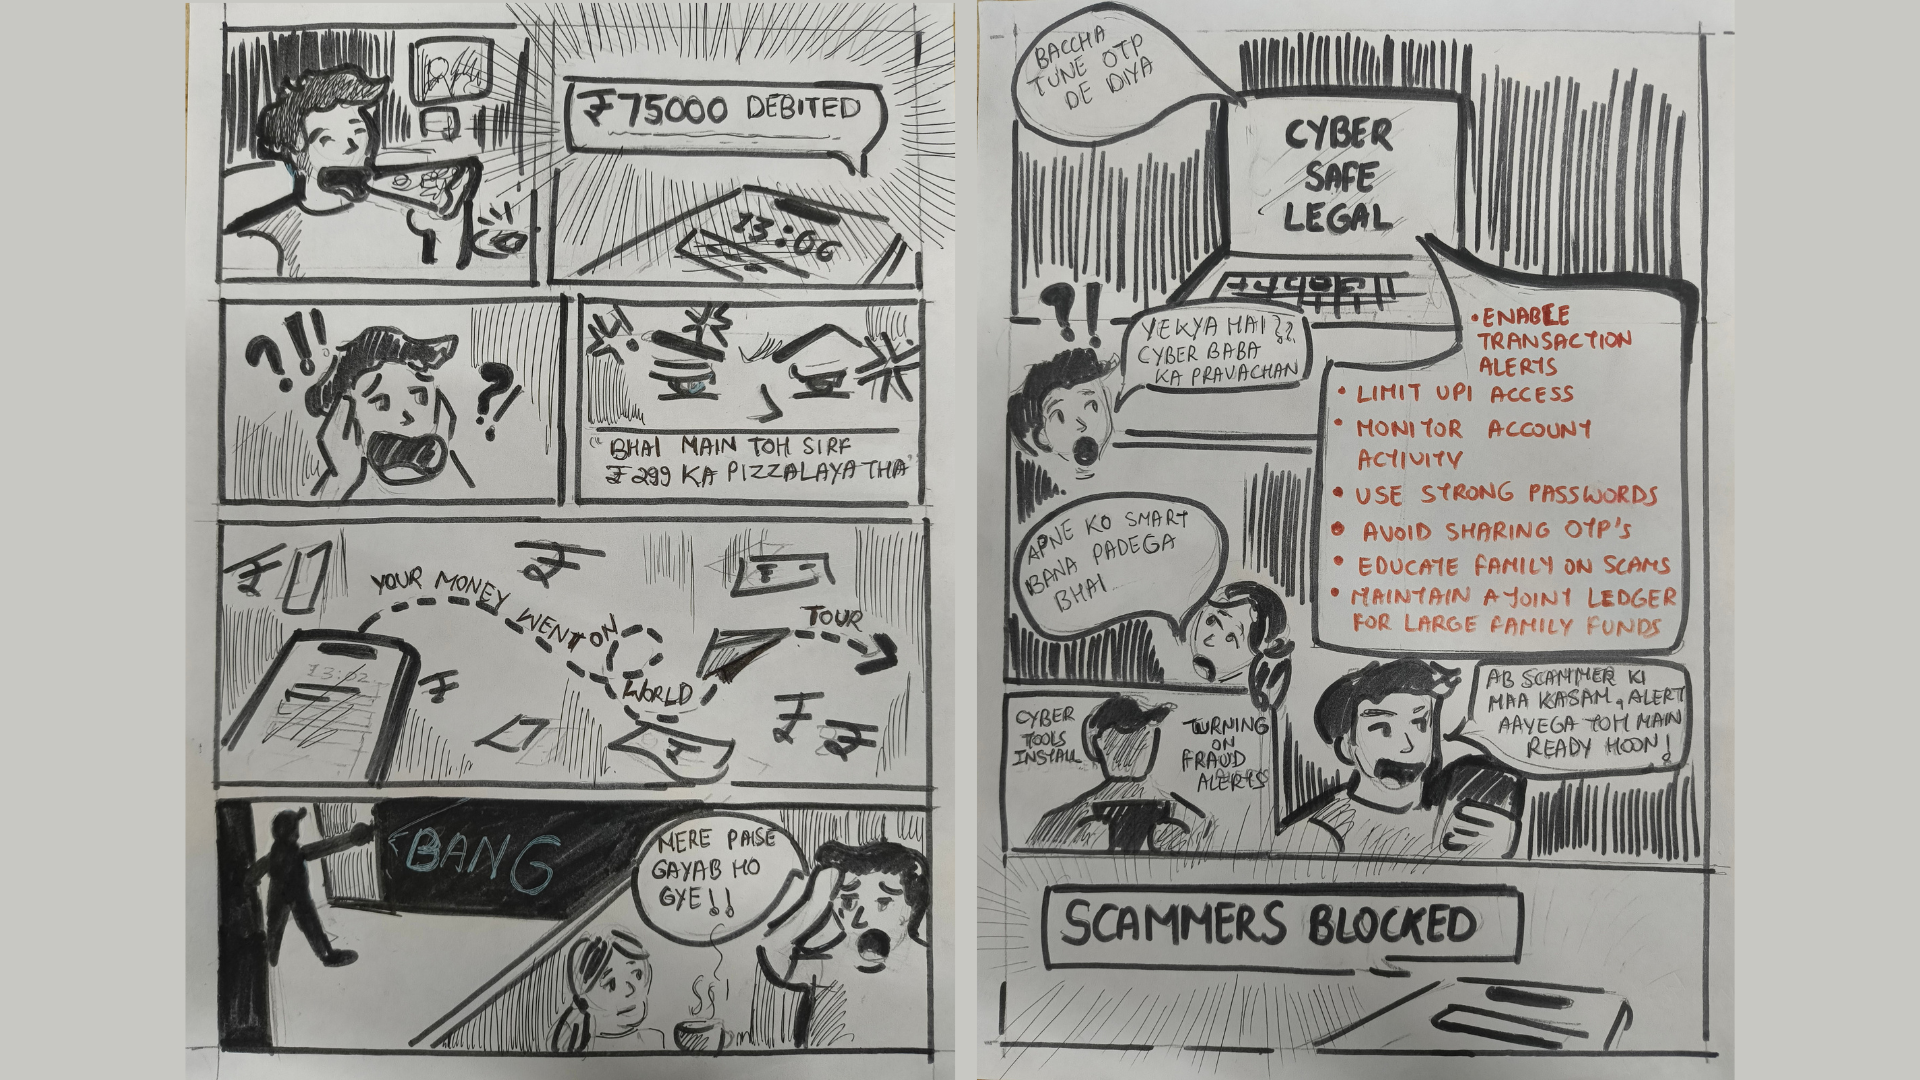 ₹75000 DEBITED
13:06
?!!
?!
"BHAI MAIN TOH SIRF
₹299 KA PIZZA LAYA THA"
₹
₹
YOUR MONEY WENT ON
WORLD
TOUR
13:02
₹
₹
₹
₹
₹
BANG
MERE PAISE
GAYAB HO
GYE!!
BACCHA
TUNE OTP
DE DIYA
CYBER
SAFE
LEGAL
?!
YE KYA HAI ??
CYBER BABA
KA PRAVACHAN
• ENABLE
TRANSACTION
ALERTS
• LIMIT UPI ACCESS
• MONITOR ACCOUNT
ACTIVITY
• USE STRONG PASSWORDS
• AVOID SHARING OTP'S
• EDUCATE FAMILY ON SCAMS
• MAINTAIN A JOINT LEDGER
FOR LARGE FAMILY FUNDS
APNE KO SMART
BANA PADEGA
BHAI
CYBER
TOOLS
INSTALL
TURNING
ON
FRAUD
ALERTS
AB SCAMMER KI
MAA KASAM, ALERT
AAYEGA TOH MAIN
READY HOON!
SCAMMERS BLOCKED